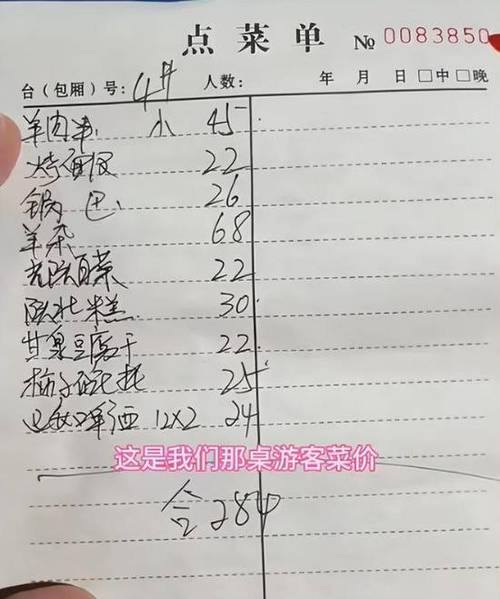 点菜单 № 0083850
台(包厢)号: 4# 人数: 年 月 日 □中 □晚
羊肉羊 小 45
烤面皮 22
锅巴 26
羊杂 68
白菜 22
陕北糕 30
甘泉豆腐干 22
柿子 25
啤酒 12×2 24
这是我们那桌游客菜价
合 284